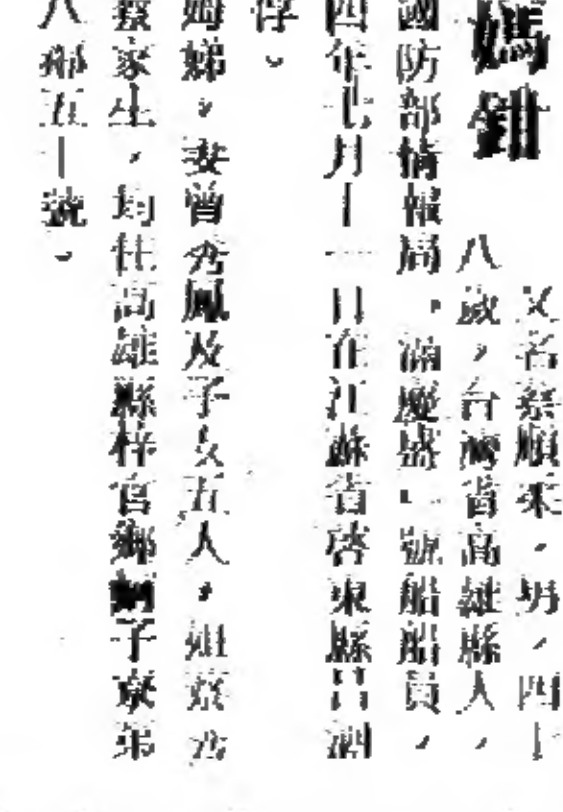 媽鉗
又名蔡順來,男,四十
八歲,台灣省高雄縣人,
國防部情報局,滿慶盛一號船船員,
四年七月十一日在江蘇省啓東縣呂泗
俘。
姆娣,妻曾秀鳳及子女五人,姐蔡秀
蔡家生,均住高雄縣梓官鄉子寮第
八鄰五十號。